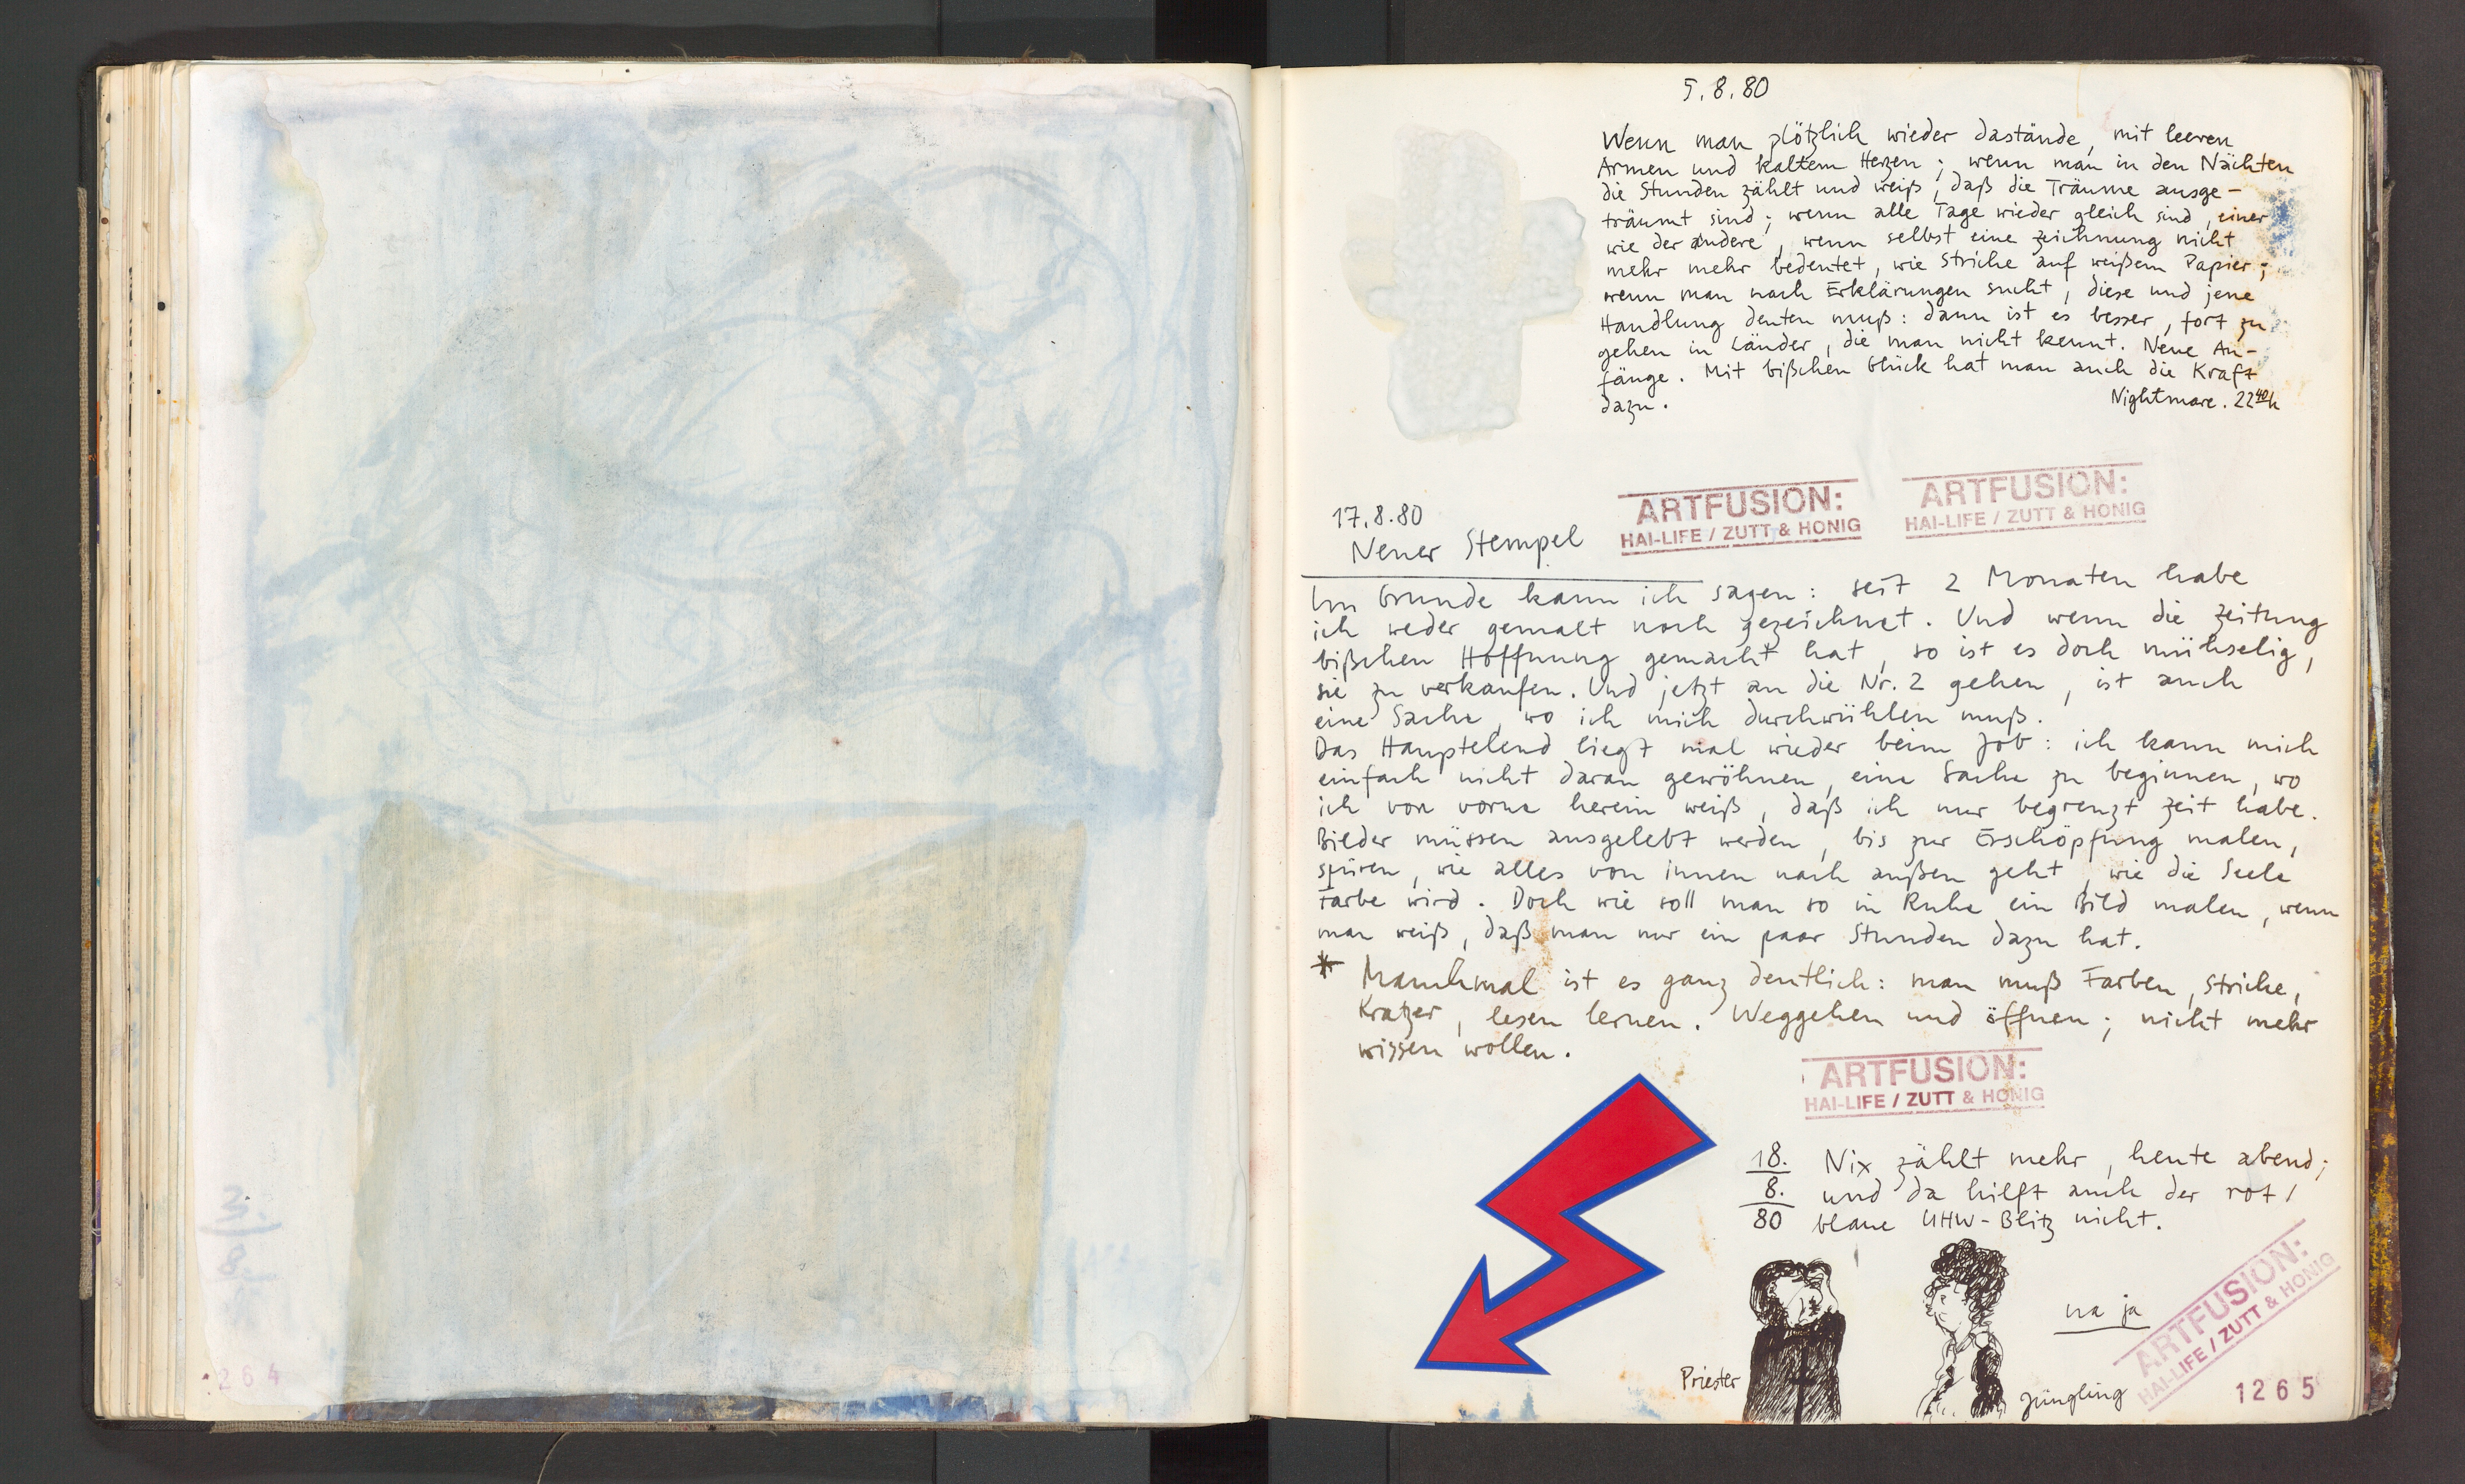 3.
8.
264
5.8.80
Wenn man plötzlich wieder dastände, mit leeren
Armen und kaltem Herzen; wenn man in den Nächten
die Stunden zählt und weiß, daß die Träume ausge-
träumt sind; wenn alle Tage wieder gleich sind, einer
wie der andere, wenn selbst eine Zeichnung nicht
mehr mehr bedeutet, wie Striche auf weißem Papier;
wenn man nach Erklärungen sucht, diese und jene
Handlung deuten muß: dann ist es besser, fort zu
gehen in Länder, die man nicht kennt. Neue An-
fänge. Mit bißchen Glück hat man auch die Kraft
dazu.
Nightmare. 22 40 h
17.8.80
Neuer Stempel
ARTFUSION:
HAI-LIFE / ZUTT & HONIG
ARTFUSION:
HAI-LIFE / ZUTT & HONIG
Im Grunde kann ich sagen: seit 2 Monaten habe
ich weder gemalt noch gezeichnet. Und wenn die Zeitung
bißchen Hoffnung gemacht hat, so ist es doch mühselig,
sie zu verkaufen. Und jetzt an die Nr. 2 gehen, ist auch
eine Sache, wo ich mich durchwühlen muß.
Das Hauptelend liegt mal wieder beim Job: ich kann mich
einfach nicht daran gewöhnen, eine Sache zu beginnen, wo
ich von vorne herein weiß, daß ich nur begrenzt Zeit habe.
Bilder müssen ausgelebt werden, bis zur Erschöpfung malen,
spüren, wie alles von innen nach außen geht, wie die Seele
Farbe wird. Doch wie soll man so in Ruhe ein Bild malen, wenn
man weiß, daß man nur ein paar Stunden dazu hat.
* Manchmal ist es ganz deutlich: man muß Farben, Striche,
Kratzer, lesen lernen. Weggehen und öffnen; nicht mehr
wissen wollen.
ARTFUSION:
HAI-LIFE / ZUTT & HONIG
18. Nix zählt mehr, heute abend;
8. und da hilft auch der rot/
80 blaue UHW-Blitz nicht.
na ja
ARTFUSION:
HAI-LIFE / ZUTT & HONIG
Priester
Jüngling
1265